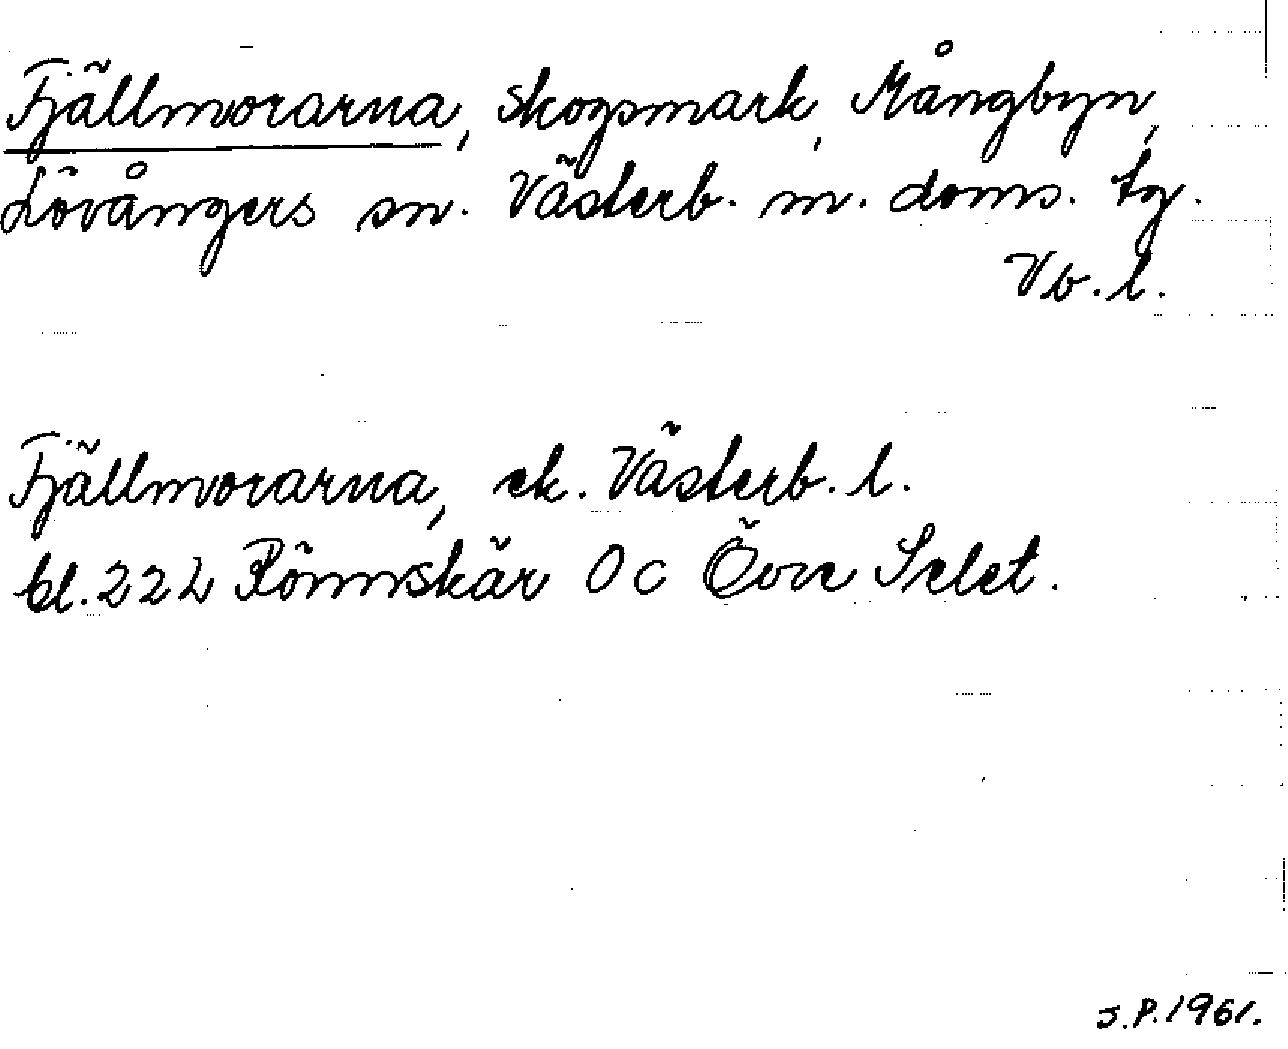 Fjällmorarna, skogsmark, Mångbyn,
Lövångers sn. Västerb. m. doms. tg.
Vb. l.
Fjällmorarna, ek. Västerb. l.
bl. 22 L Rönnskär 0 c Övre Selet.
J.P. 1961.